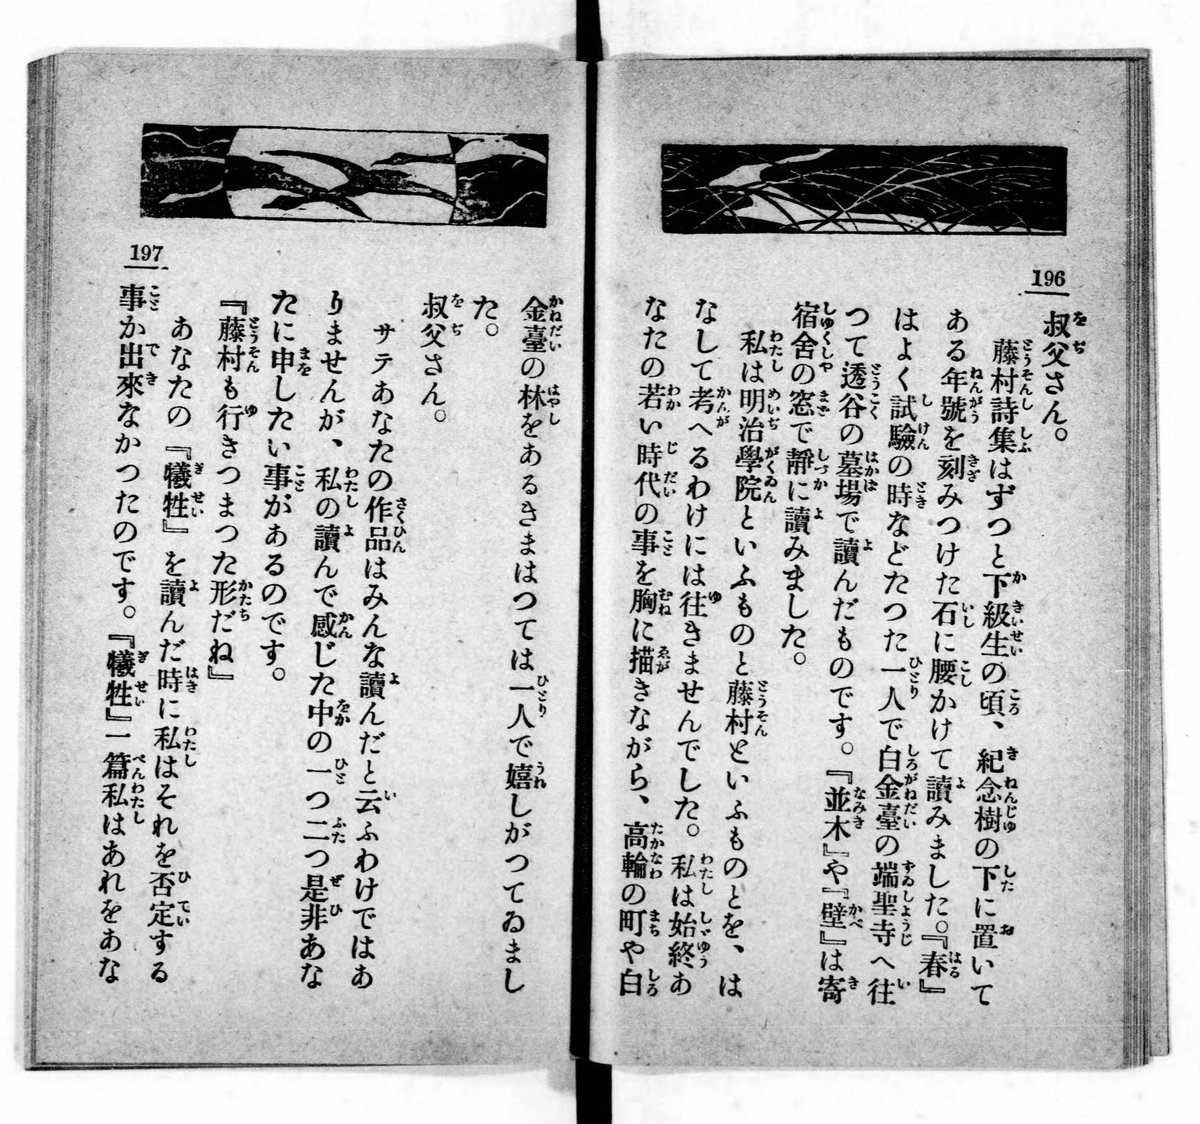 196
叔父さん。
藤村詩集はずつと下級生の頃、紀念樹の下に置いて
ある年號を刻みつけた石に腰かけて讀みました。『春』
はよく試驗の時などたつた一人で白金臺の端聖寺へ往
つて透谷の墓場で讀んだものです。『並木』や『壁』は寄
宿舍の窓で靜に讀みました。
私は明治學院といふものと藤村といふものとを、は
なして考へるわけには往きませんでした。私は始終あ
なたの若い時代の事を胸に描きながら、高輪の町や白
197
金臺の林をあるきまはつては一人で嬉しがつてゐまし
た。
叔父さん。
サテあなたの作品はみんな讀んだと云ふわけではあ
りませんが、私の讀んで感じた中の一つ二つ是非あな
たに申したい事があるのです。
『藤村も行きつまつた形だね』
あなたの『犧牲』を讀んだ時に私はそれを否定する
事か出來なかつたのです。『犧牲』一篇私はあれをあな